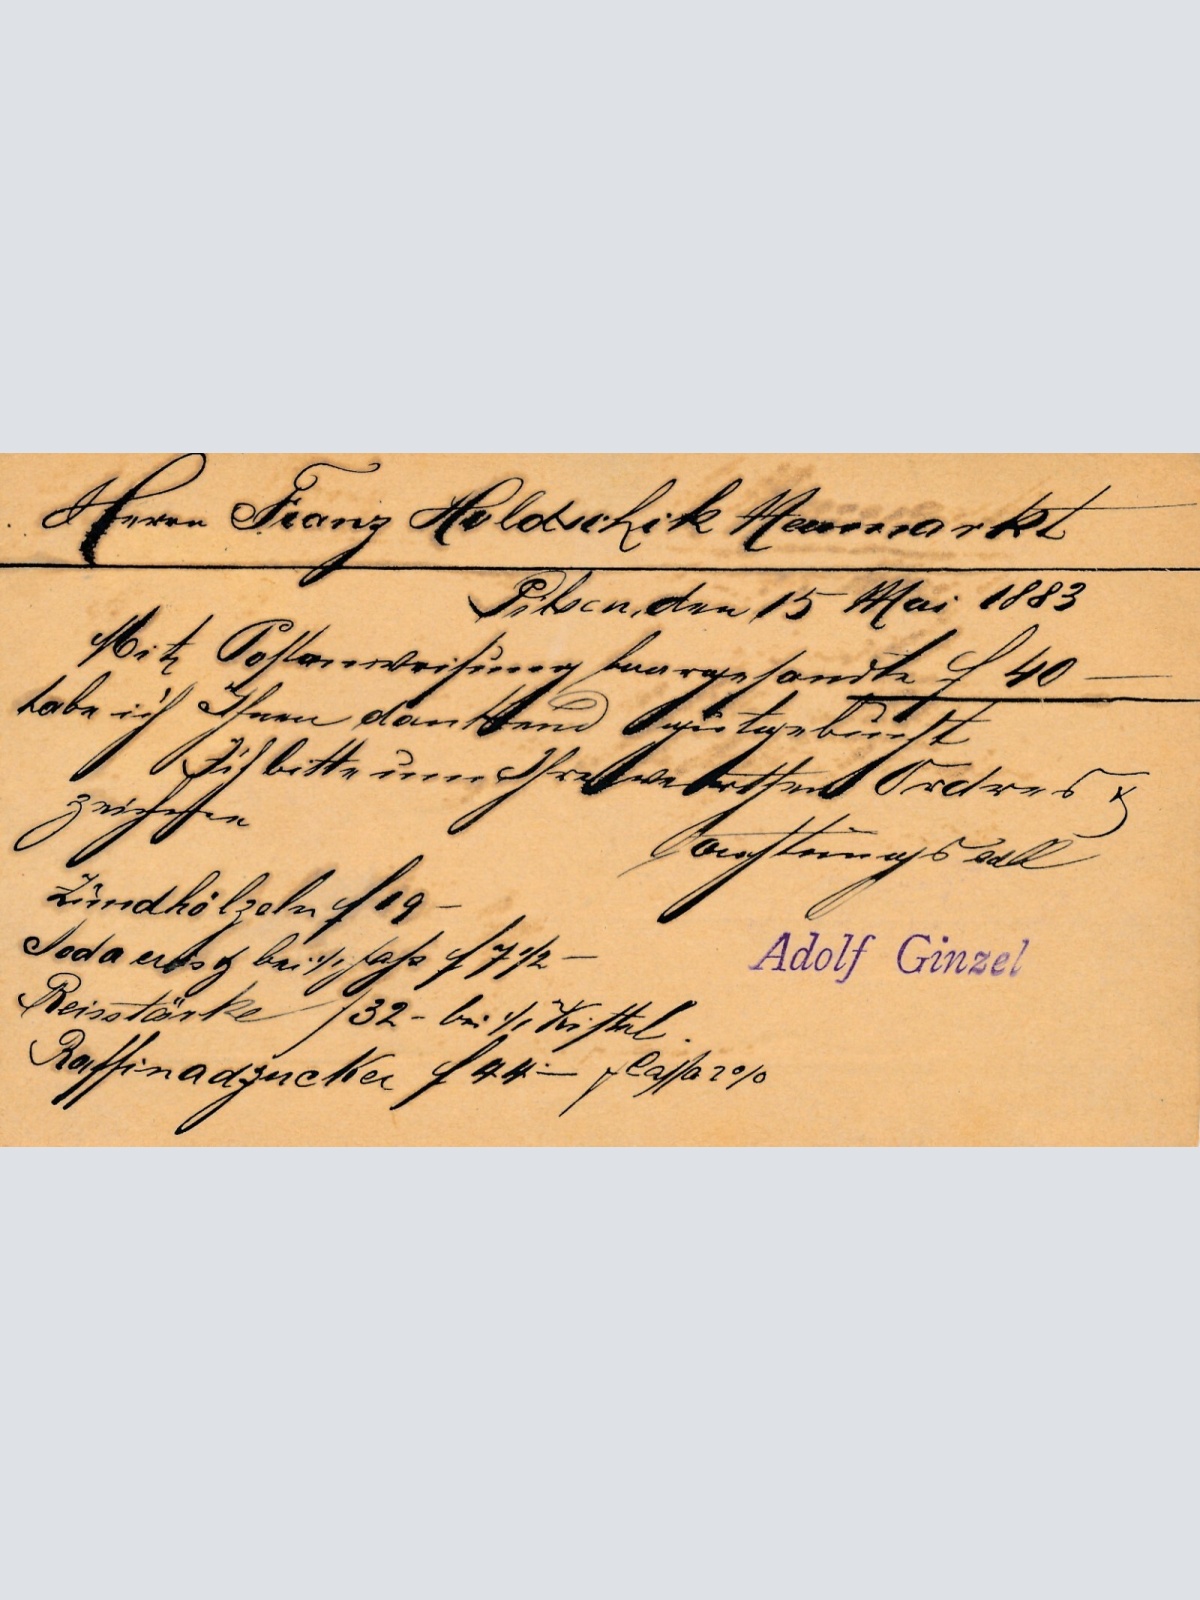 Herrn Franz Holdschik Neumarkt
Pilsen, den 15 Mai 1883
Mit Postanweisung baargesandte f 40 —
habe ich Ihnen dankend gutgebucht
Ich bitte um Ihre werthen Ordres &
zeichne
Achtungsvoll
Zündhölzeln f 19 —
Soda bei 1/1 Fass f 7 1/2 —
Adolf Ginzel
Reisstärke f 32 - bei 1/1 Kistel.
Raffinadzucker f 44 — Cassa 2%